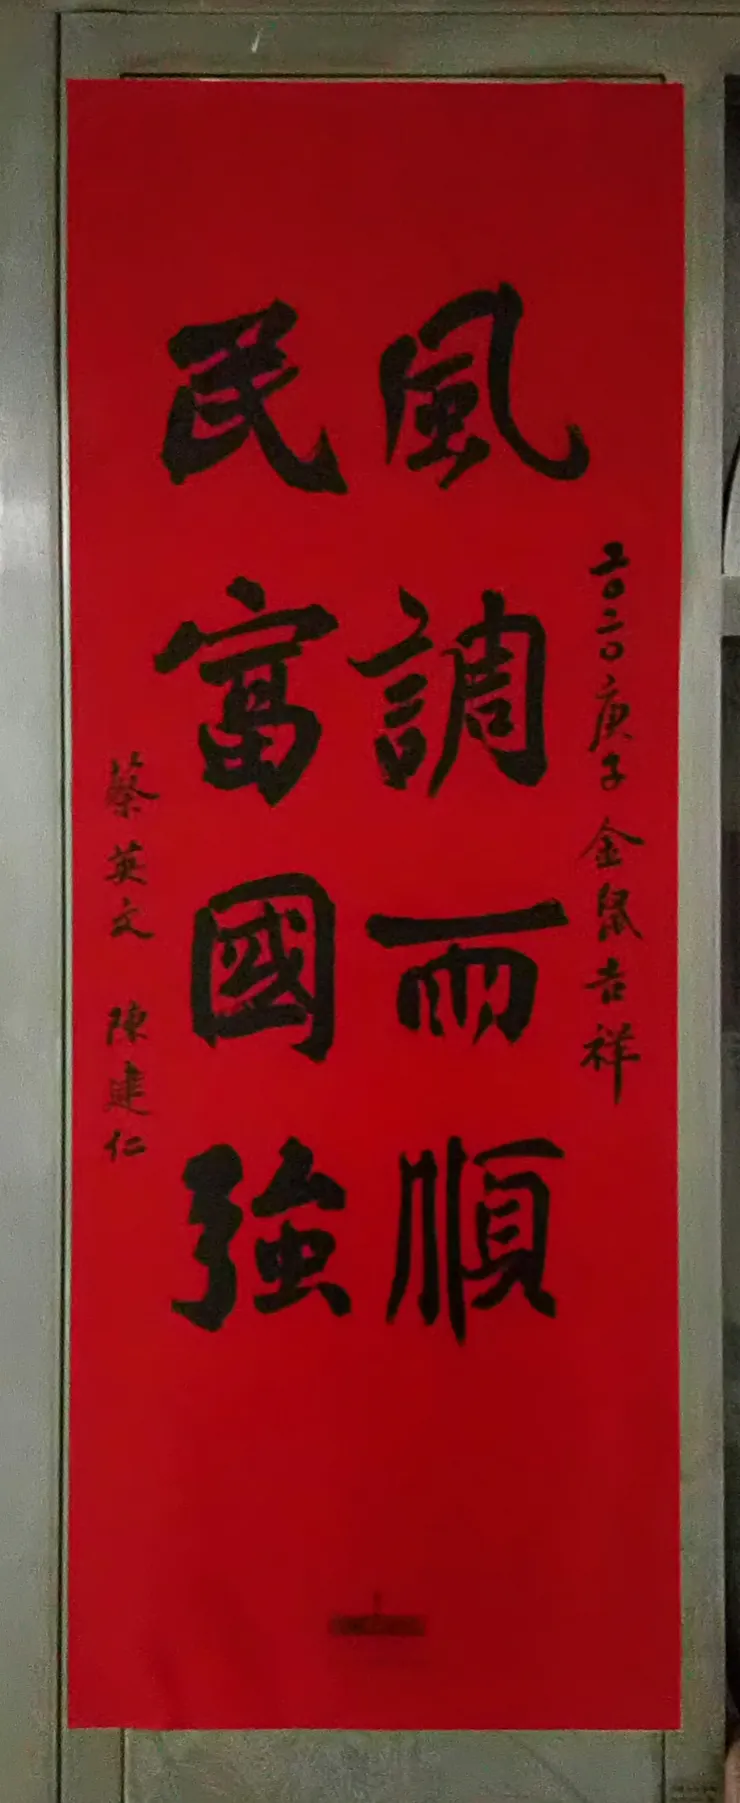 二〇二〇庚子金鼠吉祥
風調雨順
民富國強
蔡英文 陳建仁